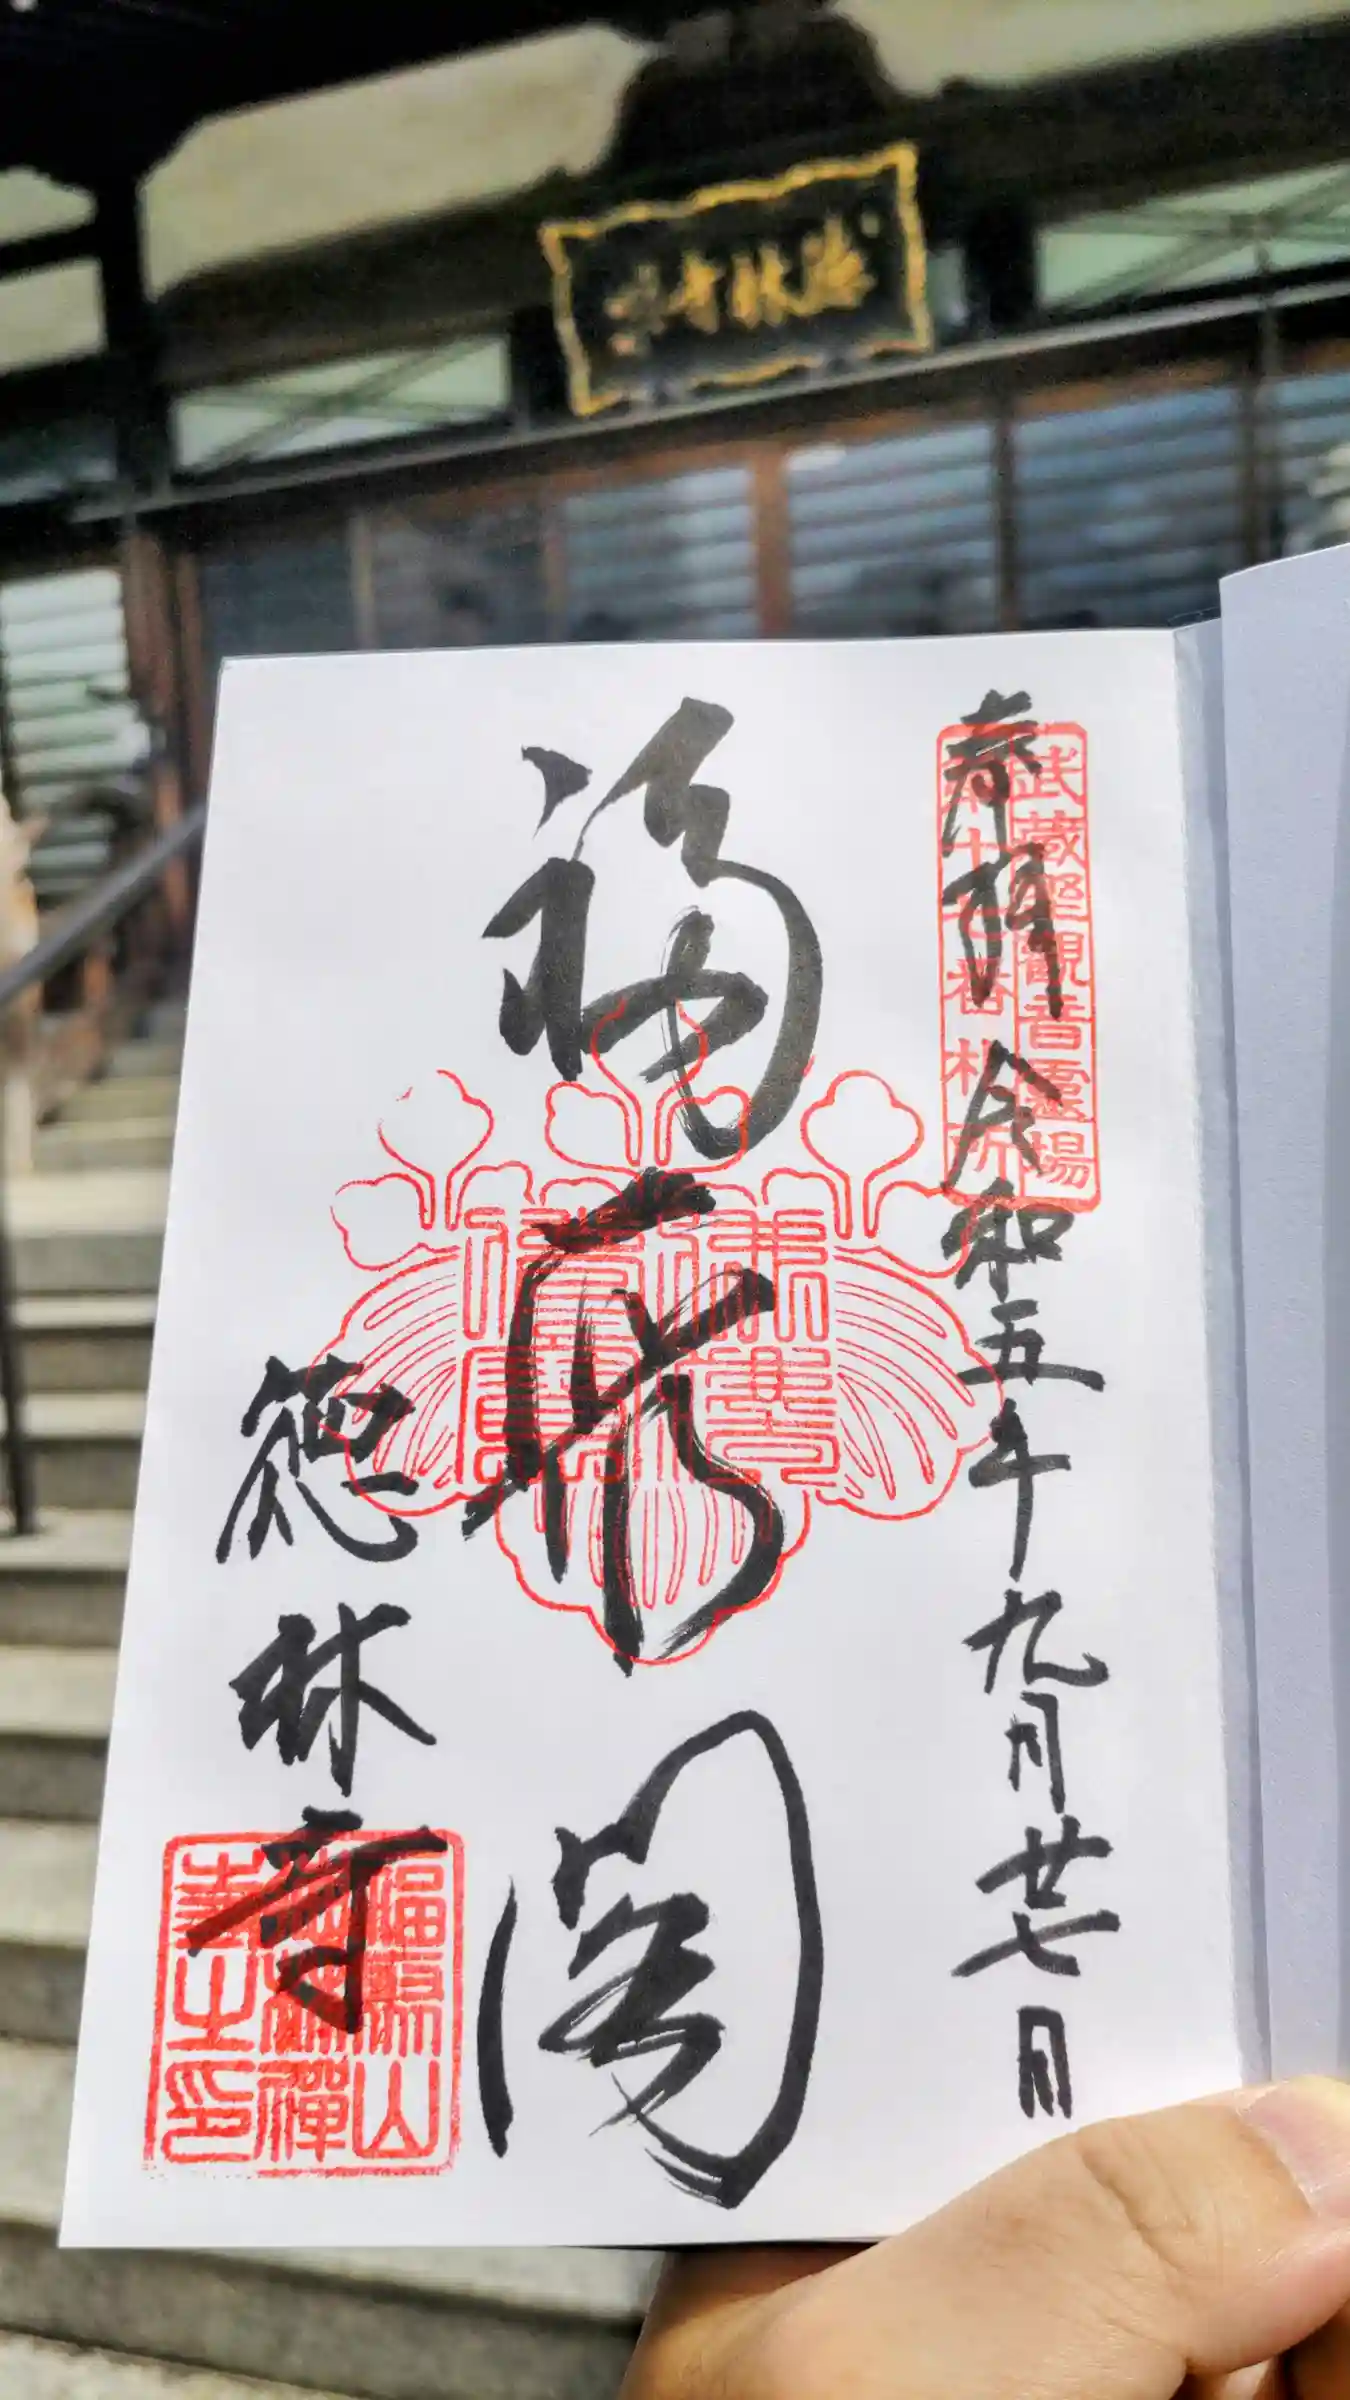 徳林寺
奉拝 令和五年九月廿七日
武蔵埜観音霊場
第十七番札所
福聚閣
徳林寺
福聚山
徳林禪
寺之印